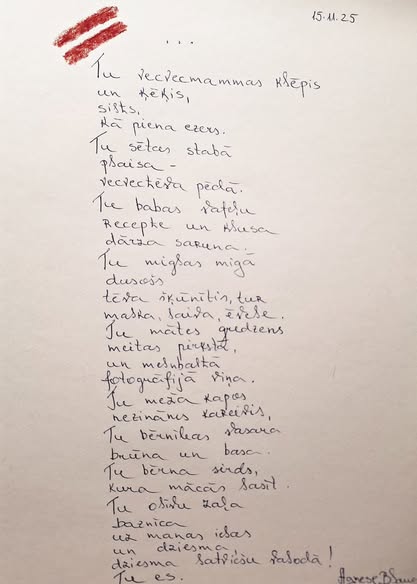 15.11.25
...
Tu vecvecmammas klēpis
un ķēķis,
silts,
kā piena ezers.
Tu sētas stabā
plaisa -
vecvectēva pēdā.
Tu babas vafeļu
recepte un klusa
dārza saruna.
Tu miglas migā
dusošs
tēva šķūnītis, tur
malka, laiva, ēvele.
Tu mātes gredzens
meitas pirkstā,
un melnbaltā
fotogrāfijā viņa.
Tu meža kapos
nezināms kareivis,
Tu bērnības vasara
brūna un basa.
Tu bērna sirds,
kura mācās lasīt.
Tu olīvu zaļa
baznīca
uz manas ielas
un dziesma,
dziesma latviešu valodā!
Tu es.